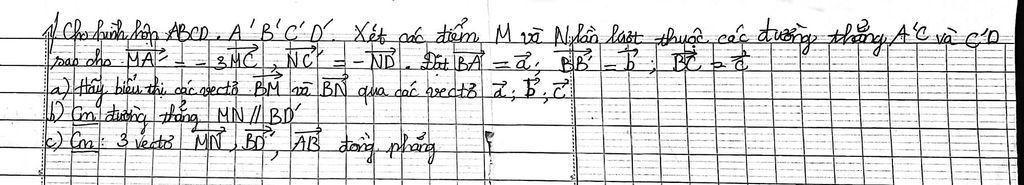 1/ Cho hình hộp ABCD.A'B'C'D'. Xét các điểm M và N lần lượt thuộc các đường thẳng A'C và C'D
sao cho $\overrightarrow{MA'} = -3\overrightarrow{MC}$, $\overrightarrow{NC'} = -\overrightarrow{ND}$. Đặt $\overrightarrow{BA} = \vec{a}$; $\overrightarrow{BB'} = \vec{b}$; $\overrightarrow{BC} = \vec{c}$
a) Hãy biểu thị các vectơ $\overrightarrow{BM}$ và $\overrightarrow{BN}$ qua các vectơ $\vec{a}$; $\vec{b}$; $\vec{c}$
b) Cm đường thẳng MN // BD'
c) Cm: 3 vectơ $\overrightarrow{MN}$, $\overrightarrow{BD}$, $\overrightarrow{AB}$ đồng phẳng